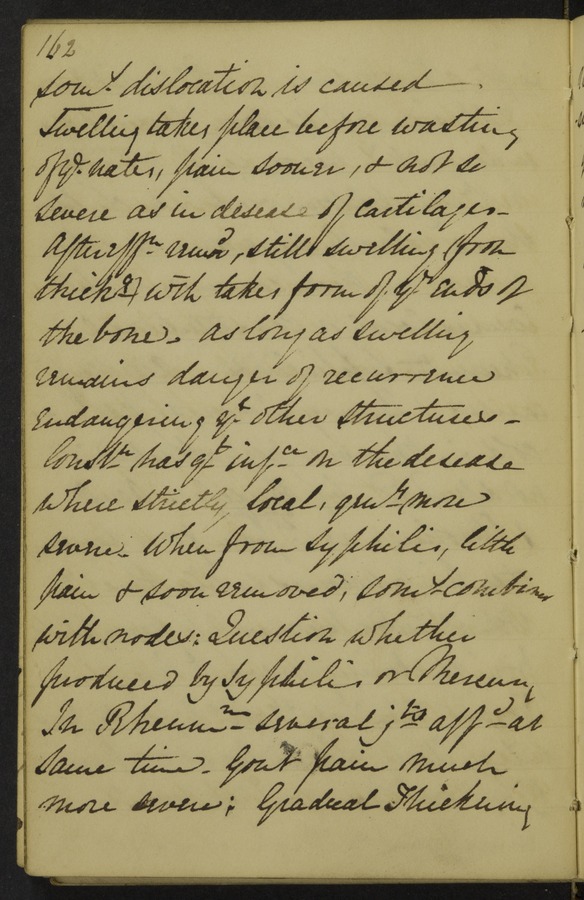 162
somt. dislocation is caused
Swelling takes place before wasting
of ye. nates, pain sooner, & not so
severe as in desease of Cartilages -
After effn. remd, still swelling (from
thickg) wch takes form of ye ends of
the bone. as long as swelling
remains danger of recurrence
endangering ye other structures -
Constn. has gt infce on the desease
where strictly local, genly more
severe. When from Syphilis, little
pain & soon removed, somt- combined
with nodes: Question whether
produced by Syphilis or Mercury
In Rheumm- several jts affd- at
same time - Gout pain much
more severe; Gradual Thickening